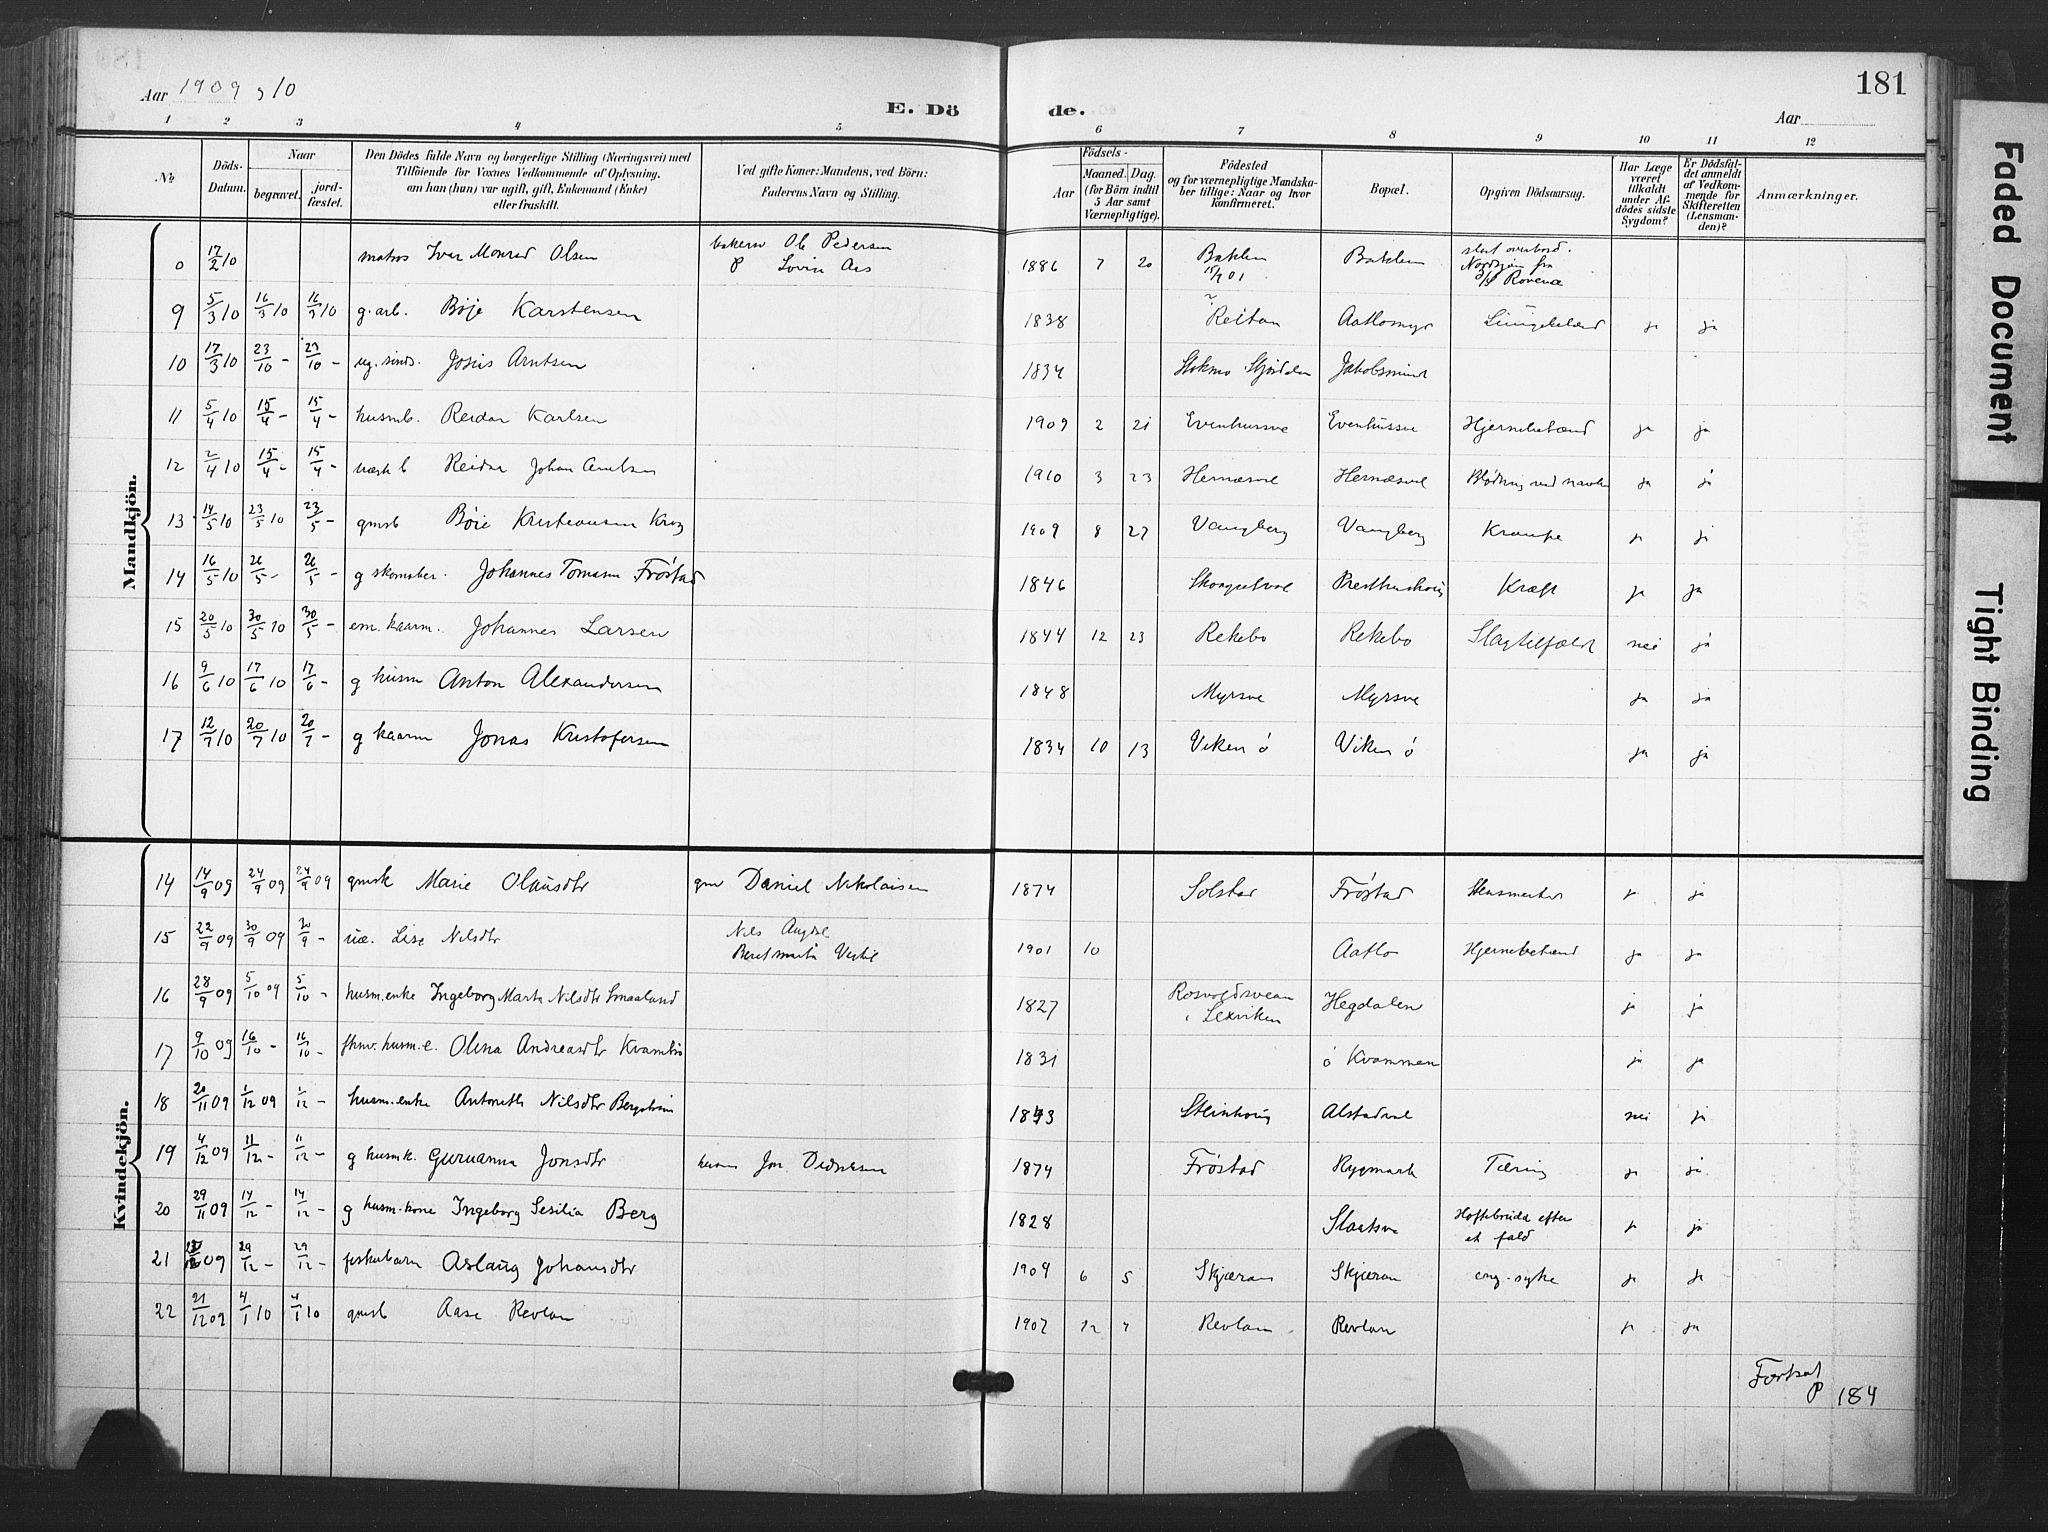 Aar 1909 & 10
E. Dö de.
181
Aar
1 2 3 4 5 6 7 8 9 10 11 12
№
Döds-Datum.
Naar
begravet.
jord-fæstet.
Den Dödes fulde Navn og borgerlige Stilling (Næringsvei) med
Tilföiende for Voxnes Vedkommende af Oplysning,
om han (hun) var ugift, gift, Enkemand (Enke)
eller fraskilt.
Ved gifte Koner: Mandens, ved Börn:
Faderens Navn og Stilling.
Födsels-
Aar
Maaned. Dag.
(for Börn indtil
5 Aar samt
Værnepligtige).
Födested
og for værnepligtige Mandska-
ber tillige: Naar og hvor
konfirmeret.
Bopæl.
Opgiven Dödsaarsag.
Har Læge
været
tilkaldt
under Af-
dödes sidste
Sygdom?
Er Dödsfal-
det anmeldt
af Vedkom-
mende for
Skifteretten
(Lensman-
den)?
Anmærkninger.
Mandkjön.
0 17/2 10 matros Iver Monrad Olsen Ole Pedersen 1886 7 20
9 5/3 10 16/3 10 16/3 10 g. arb. Böje Karstensen 1838 Reitan Aatlomyr ja ja
10 17/3 10 23/10 - 23/10 - Josias Arntsen 1834 Stokmo Stjördalen
11 5/4 10 15/4 - 15/4 - husmb. Reidar Karlsen 1909 2 21 Evenhussve Evenhussve Hjernebetænd ja ja
12 2/4 10 15/4 - 15/4 - Reidar Johan Arntsen 1910 3 23 Hernæsvel Hernæsvel Blödning ved navlen ja ja
13 14/5 10 23/5 10 23/5 - gmsb Böie Kristiansen Krog 1909 8 27 Vangberg Vangberg Krampe ja ja
14 16/5 10 26/5 - 26/5 - g skomaker. Johannes Tomasen Fröstad 1846 Presthushaug Kræft ja ja
15 20/5 10 30/5 10 30/5 - em. kaarm. Johannes Larsen 1844 12 23 Rekebo Rekebo Slagtilfælde nei ja
16 9/6 10 17/6 10 17/6 - g husm Anton Alexandersen 1848 Myrsve Myrsve ja ja
17 12/7 10 20/7 10 20/7 - g kaarm Jonas Kristofersen 1834 10 13 Viken ö Viken ö ja ja
Kvindekjön.
14 14/9 09 24/9 09 24/9 09 gmsk Marie Olausdtr gm Daniel Nikolaisen 1874 Solstad Fröstad ja ja
15 22/9 09 30/9 09 30/9 - uæ. Lise Nilsdtr Nils 1901 10 Aatlo Hjernebetænd ja ja
16 28/9 09 5/10 09 5/10 - husm. enke Ingeborg Marta Nilsdtr Smaaland 1827 Rosvoldsvean
i Lexviken Hegdalen ja ja
17 9/10 09 16/10 - 16/10 - fhnv. husm. e. Olina Andreasdtr 1831 ö Kvammen ja ja
18 20/11 09 1/12 09 1/12 - husm. enke Antonette Nilsdtr 1843 Steinhaug nei ja
19 4/12 09 11/12 - 11/12 - g husmk. Guruanna Jonsdtr husm Jon 1874 Fröstad Rygmark Tæring ja ja
20 29/11 09 14/12 - 14/12 - g husm. kone Ingeborg Sesilia Berg 1828 Hoftebrudd efter
et fald ja ja
21 09 29/12 - 29/12 - fiskerbarn Aslaug Johansdtr 1909 6 5 Skjæran Skjæran eng. syke ja ja
22 21/12 09 4/1 10 4/1 10 gmsb Aase Revlan 1907 12 Revlan Revlan ja ja
Fortsat
P 184
Faded Document
Tight Binding